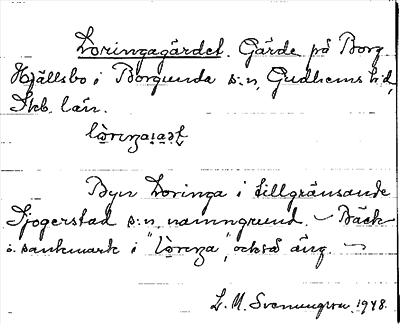 Loringagärdet. Gärde på Borg
Hjällsbo i Borgunda s:n, Gudhems hd,
Skb. län.
Byn Loringa i tillgränsande
Sjogerstad s:n namngrund. – Bäck
o. sankmark i "lòrẹna", också äng. –
L. M. Svenungsson, 1948.